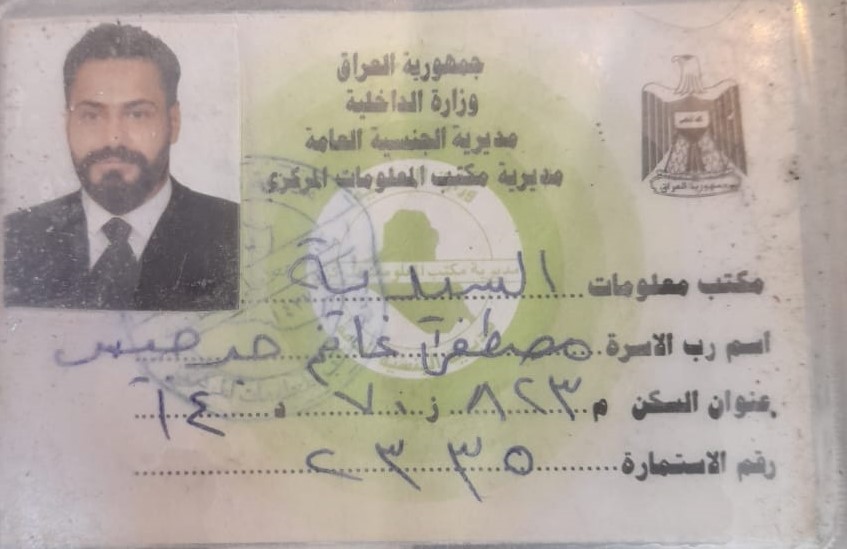 جمهورية العراق
وزارة الداخلية
مديرية الجنسية العامة
مديرية مكتب المعلومات المركزي
جمهورية العراق
مكتب معلومات السيدية
اسم رب الاسرة مصطفى غانم جرجيس
عنوان السكن م ٨٢٣ ز ٧٠ د ١٤
رقم الاستمارة ٢٣٣٥